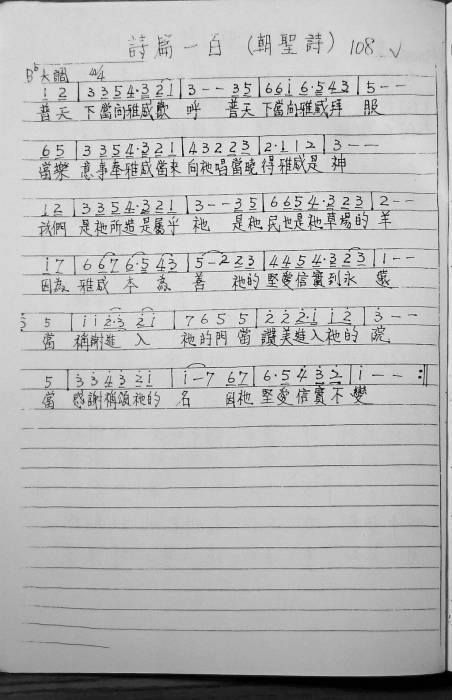 詩篇一百 (朝聖詩) 108 ✓
B♭大調 4/4
1 2 | 3 3 5 4·3 2 1 | 3 - - 3 5 | 6 6 i 6·5 4 3 | 5 - -
普天 下當向雅威歡 呼 普天 下當向雅威拜 服
6 5 | 3 3 5 4·3 2 1 | 4 3 2 2 3 | 2·1 1 2 | 3 - -
當樂 意事奉雅威當來 向祂唱當曉 得雅威是 神
1 2 | 3 3 5 4·3 2 1 | 3 - - 3 5 | 6 6 5 4·3 2 3 | 2 - -
我們 是祂所造是屬乎 祂 是祂 民也是祂草場的 羊
i 7 | 6 6 7 6·5 4 3 | 5 - 2 2 3 | 4 4 5 4·3 2 3 | 1 - -
因為 雅威 本 為 善 祂的 堅愛信實到永 遠
5 | i i 2·3 2 i | 7 6 5 5 | 2 2 2·i i 2 | 3 - -
當 稱謝進 入 祂的門當 讚美進入祂的 院
5 | 3 3 4 3 2 i | i - 7 6 7 | 6·5 4 3 2 | i - - :||
當 感謝稱頌祂的 名 因祂 堅愛信實不 變